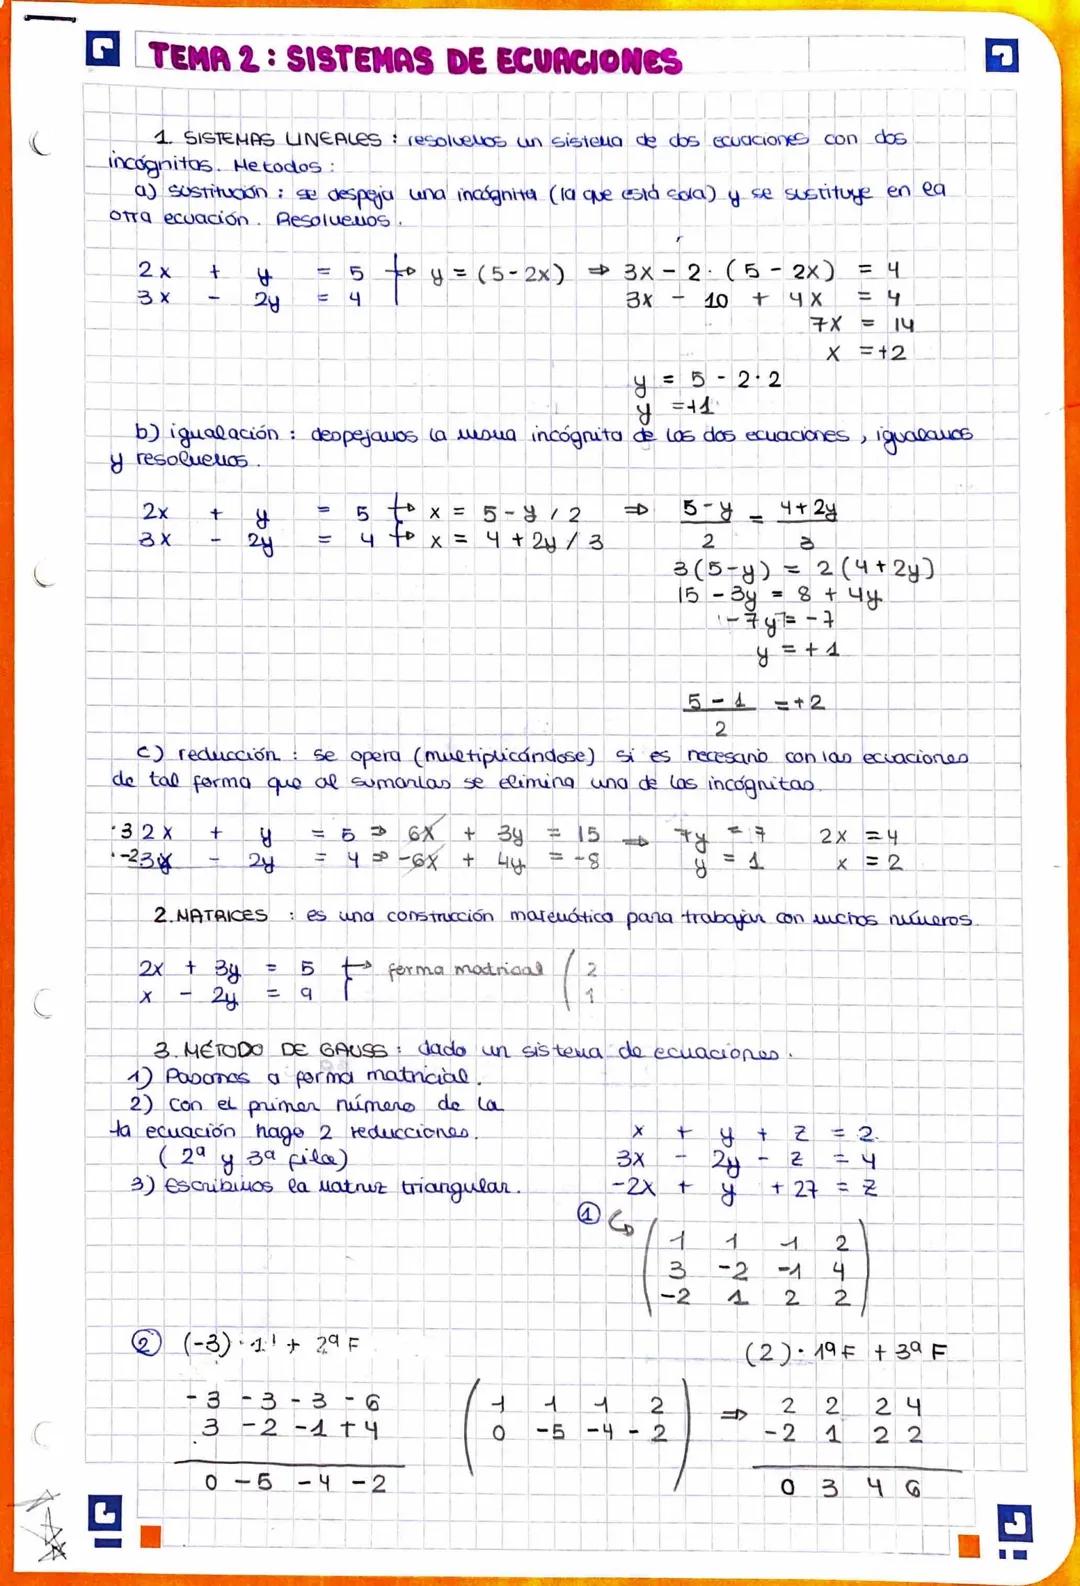 TEMA 2: SISTEMAS DE ECUACIONES
1. SISTEMAS LINEALES : resolvemos un sistema de dos ecuaciones con dos
incógnitas. Metodos :
a) sustitución : se despeja una incógnita (la que está sola) y se sustituye en la
otra ecuación. Resolvemos.
2x + y = 5 → y = (5-2x) ⇒ 3x - 2·(5-2x) = 4
3x - 2y = 4 3x - 10 + 4x = 4
7x = 14
x = +2
y = 5 - 2·2
y = +1
b) igualación : despejamos la misma incógnita de las dos ecuaciones, igualamos
y resolvemos.
2x + y = 5 → x = 5 - y / 2 ⇒ 5-y/2 = 4+2y/3
3x - 2y = 4 → x = 4 + 2y / 3
3(5-y) = 2(4+2y)
15 - 3y = 8 + 4y
-7y = -7
y = +1
5-1/2 = +2
c) reducción : se opera (multiplicándose) si es necesario con las ecuaciones
de tal forma que al sumarlas se elimina una de las incógnitas.
·3 2x + y = 5 ⇒ 6x + 3y = 15 ⇒ 7y = 7 2x = 4
·-2 3x - 2y = 4 ⇒ -6x + 4y = -8 y = 1 x = 2
2. MATRICES : es una construcción matemática para trabajar con muchos números.
2x + 3y = 5 → forma matricial ( 2
x - 2y = 9 1
3. MÉTODO DE GAUSS : dado un sistema de ecuaciones.
1) Pasamos a forma matricial.
2) con el primer número de la
1a ecuación hago 2 reducciones.
(2ª y 3ª fila)
3) Escribimos la matriz triangular.
x + y + z = 2
3x - 2y - z = 4
-2x + y + 2z = 2
① ↳
1 1 1 2
3 -2 -1 4
-2 1 2 2
② (-3)·1' + 2ª F (2)·1ª F + 3ª F
-3 -3 -3 -6 ( 1 1 1 2 ) ⇒ 2 2 2 4
3 -2 -1 +4 0 -5 -4 -2 -2 1 2 2
0 -5 -4 -2 0 3 4 6